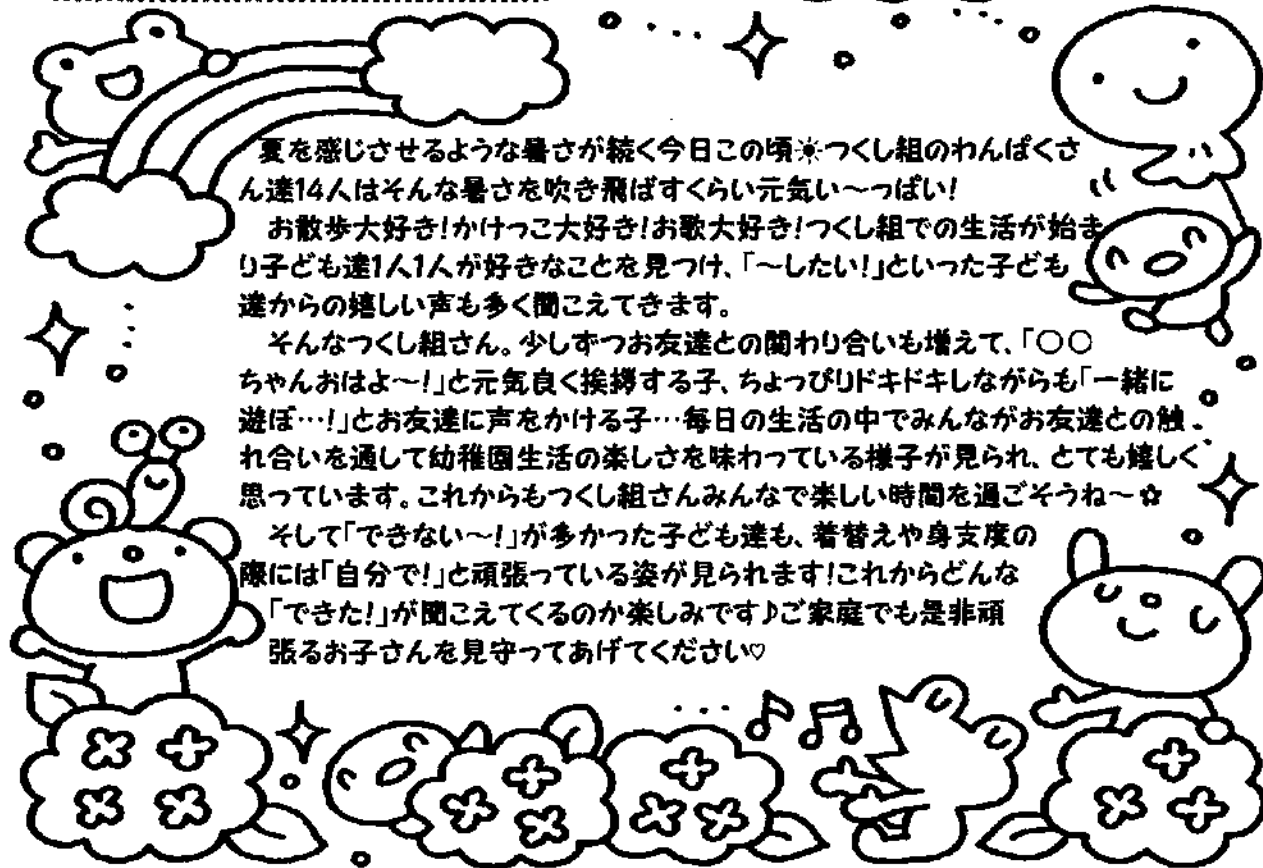 夏を感じさせるような暑さが続く今日この頃☀つくし組のわんぱくさ
ん達14人はそんな暑さを吹き飛ばすくらい元気い～っぱい!
お散歩大好き!かけっこ大好き!お歌大好き!つくし組での生活が始ま
り子ども達1人1人が好きなことを見つけ、「～したい!」といった子ども
達からの嬉しい声も多く聞こえてきます。
そんなつくし組さん。少しずつお友達との関わり合いも増えて、「○○
ちゃんおはよ～!」と元気良く挨拶する子、ちょっぴりドキドキしながらも「一緒に
遊ぼ…!」とお友達に声をかける子…毎日の生活の中でみんながお友達との触
れ合いを通して幼稚園生活の楽しさを味わっている様子が見られ、とても嬉しく
思っています。これからもつくし組さんみんなで楽しい時間を過ごそうね～☆
そして「できない～!」が多かった子ども達も、着替えや身支度の
際には「自分で!」と頑張っている姿が見られます!これからどんな
「できた!」が聞こえてくるのか楽しみです♪ご家庭でも是非頑
張るお子さんを見守ってあげてください♡